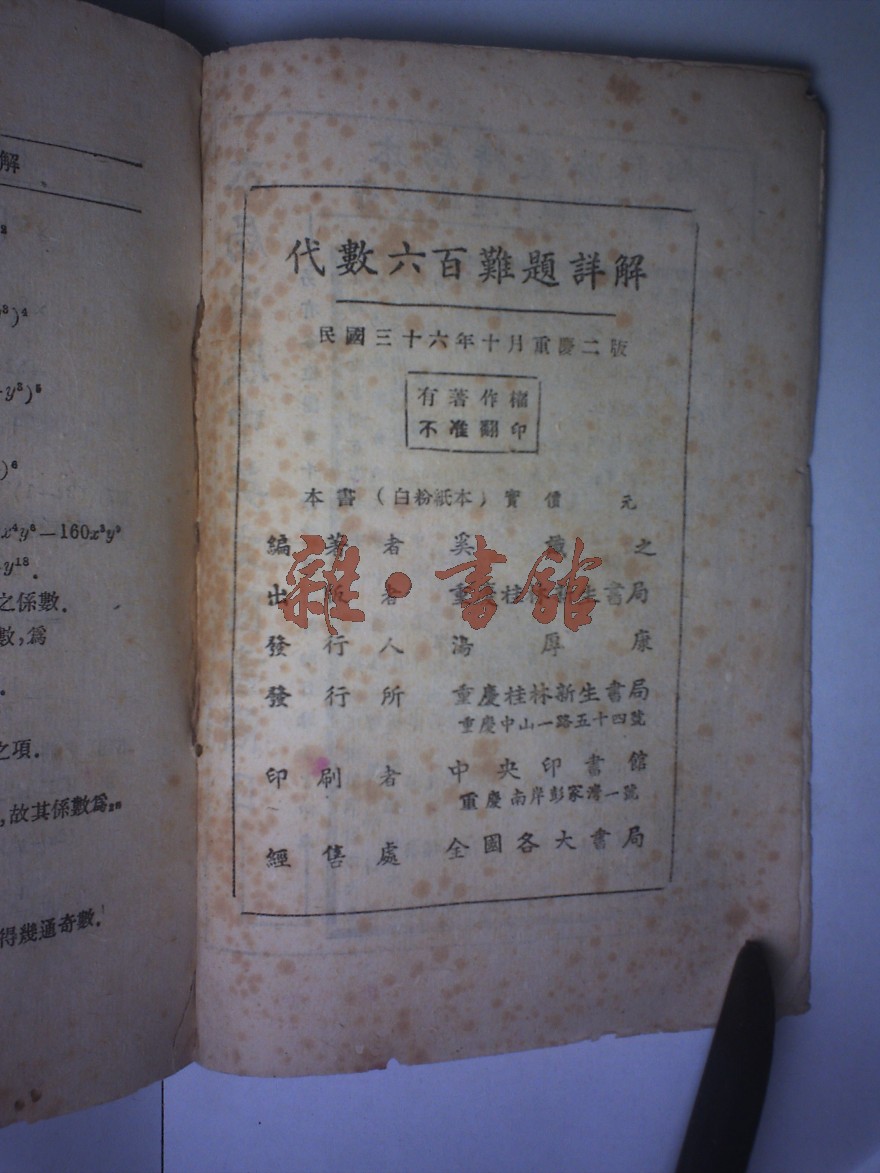 解
2
³)⁴
y³)⁵
)⁶
x⁴y⁶－160x³y⁹
y¹⁸．
之係數．
數，爲
之項．
，故其係數爲₂₀
得幾通奇數．
代數六百難題詳解
民國三十六年十月重慶二版
有著作權
不准翻印
本書（白粉紙本）實價 元
編著者 奚 之
出版者 重慶桂林新生書局
發行人 湯厚康
發行所 重慶桂林新生書局
重慶中山一路五十四號
印刷者 中央印書館
重慶南岸彭家灣一號
經售處 全國各大書局
雜·書館